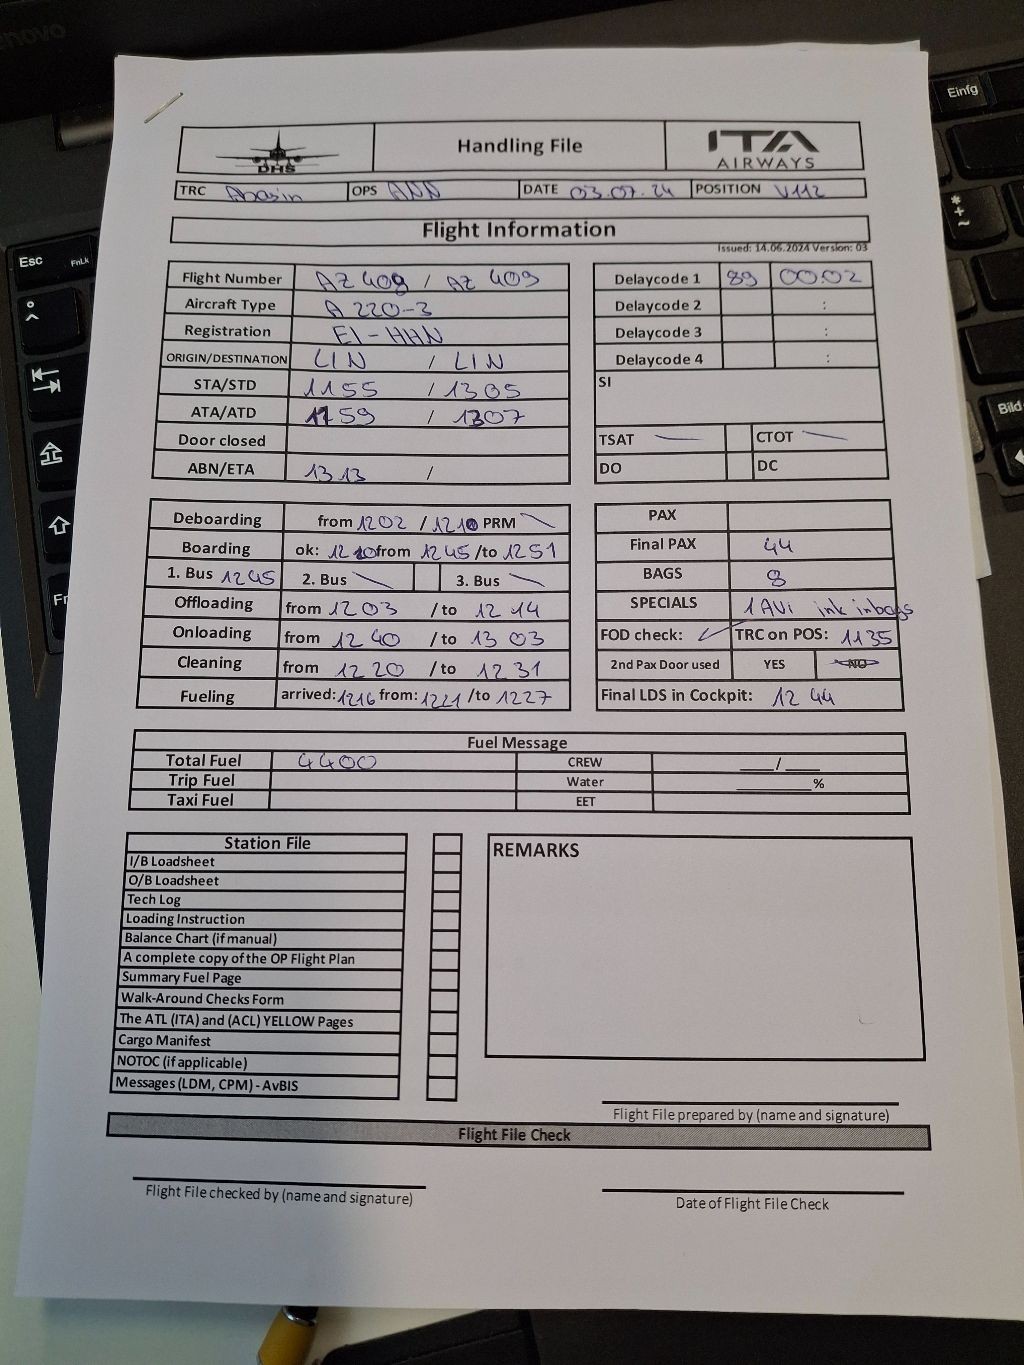 Einfg
DHS
Handling File
ITA
AIRWAYS
TRC Abasin OPS ANN DATE 03.07.24 POSITION V112
Flight Information
Issued: 14.06.2024 Version: 03
Flight Number AZ 408 / AZ 409
Aircraft Type A 220-3
Registration EI-HHN
ORIGIN/DESTINATION LIN / LIN
STA/STD 1155 / 1305
ATA/ATD 1159 / 1307
Door closed
ABN/ETA 1313 /
Delaycode 1 89 00:02
Delaycode 2 :
Delaycode 3 :
Delaycode 4 :
SI
TSAT — CTOT —
DO DC
Deboarding from 1202 / 1210 PRM \
Boarding ok: 1210 from 1245 /to 1251
1. Bus 1245 2. Bus \ 3. Bus \
Offloading from 1203 /to 1214
Onloading from 1240 /to 1303
Cleaning from 1220 /to 1231
Fueling arrived: 1216 from: 1221 /to 1227
PAX
Final PAX 44
BAGS 8
SPECIALS 1 AVI ink inbags
FOD check: ✓ TRC on POS: 1135
2nd Pax Door used YES NO
Final LDS in Cockpit: 1244
Fuel Message
Total Fuel 4400 CREW ____/____
Trip Fuel Water ________%
Taxi Fuel EET
Station File
I/B Loadsheet
O/B Loadsheet
Tech Log
Loading Instruction
Balance Chart (if manual)
A complete copy of the OP Flight Plan
Summary Fuel Page
Walk-Around Checks Form
The ATL (ITA) and (ACL) YELLOW Pages
Cargo Manifest
NOTOC (if applicable)
Messages (LDM, CPM) - AvBIS
REMARKS
Flight File prepared by (name and signature)
Flight File Check
Flight File checked by (name and signature)
Date of Flight File Check
Esc
FnLk
Bild